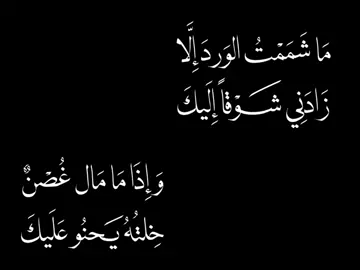 مَا شَمَمْتُ الوَردَ إِلَّا
زَادَنِي شَوْقاً إِلَيكَ
وَإِذَا مَا مَال غُصْنٌ
خِلتُهُ يَحنُو عَلَيكَ